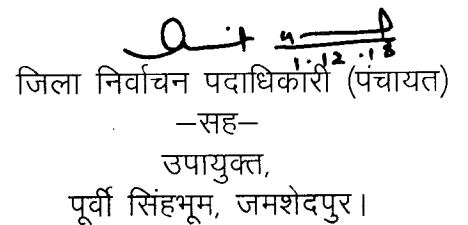 1.12.18
जिला निर्वाचन पदाधिकारी (पंचायत)
–सह–
उपायुक्त,
पूर्वी सिंहभूम, जमशेदपुर।